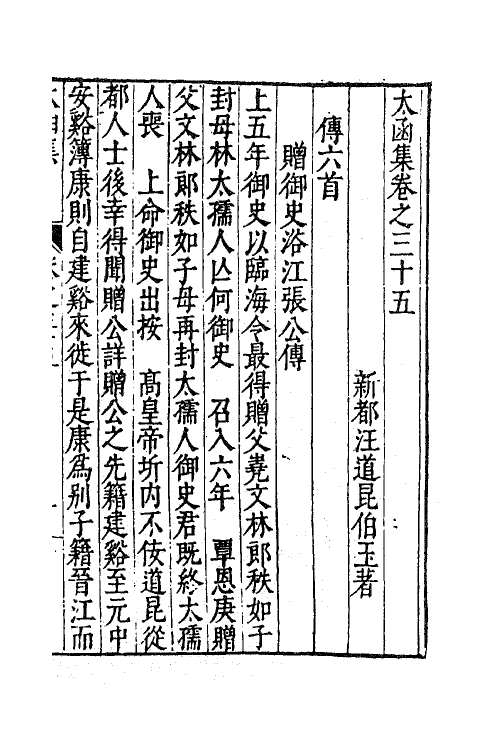 太函集卷之三十五
新都汪道昆伯玉著
傳六首
贈御史浴江張公傳
上五年御史以臨海令最得贈父嶤文林郞秩如子
封母林太孺人亾何御史　召入六年　覃恩庚贈
父文林郞秩如子母再封太孺人御史君既終太孺
人喪　上命御史出按　髙皇帝圻内不侫道昆從
都人士後幸得聞贈公詳贈公之先籍建谿至元中
安谿簿康則自建谿來徙于是康爲别子籍晉江而